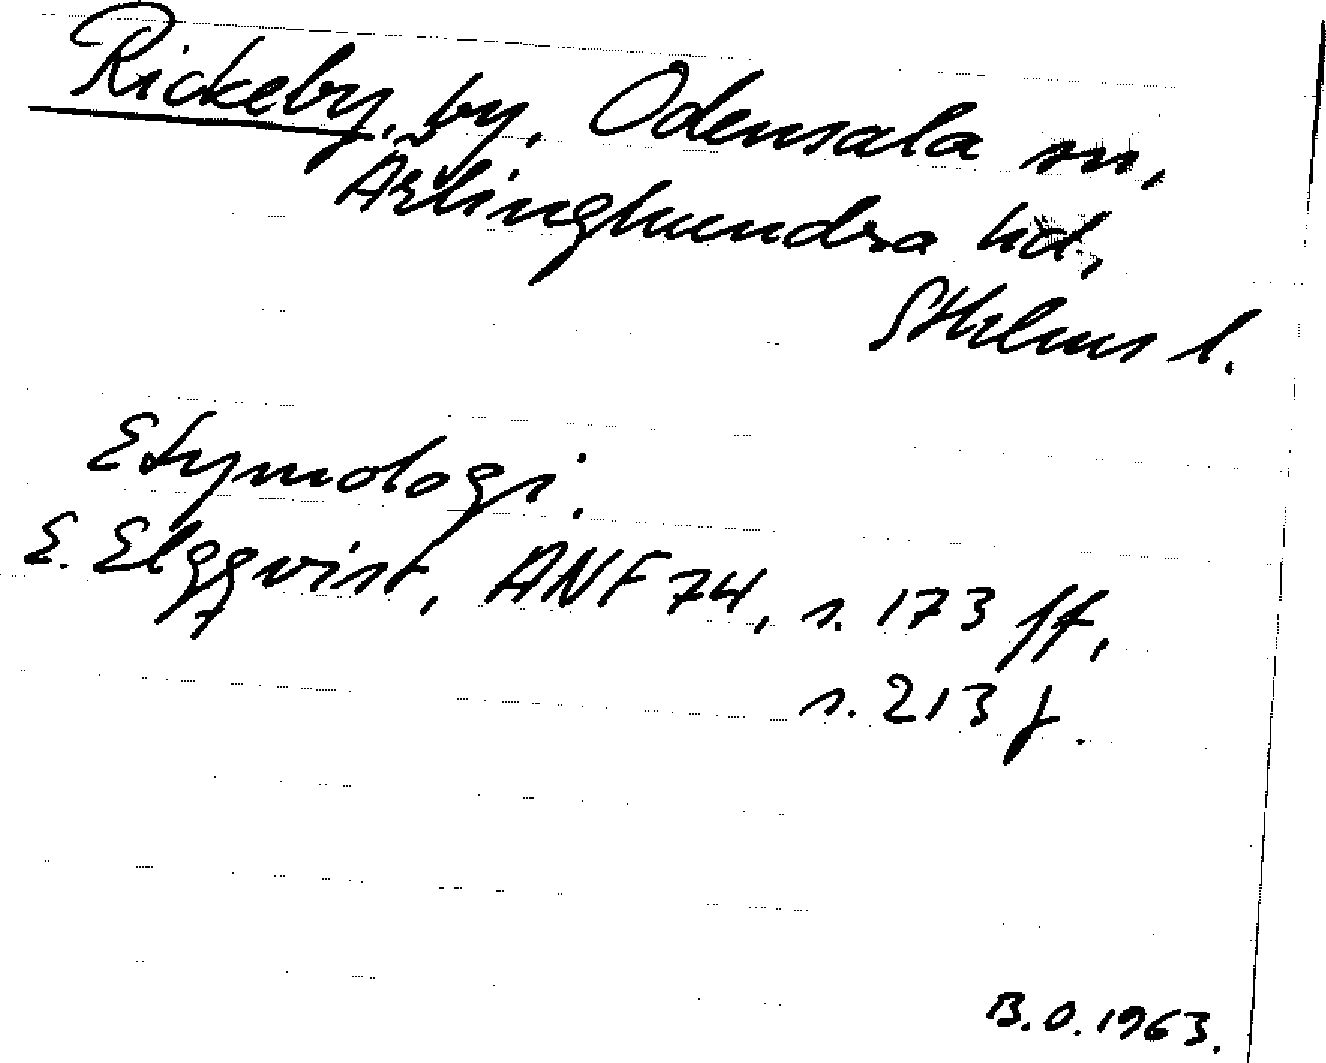 Rickeby, by, Odensala sn,
Ärlinghundra hd,
Sthlms l.
Etymologi.
E. Elgqvist, ANF 74, s. 173 ff,
s. 213 f.
B.O. 1963.